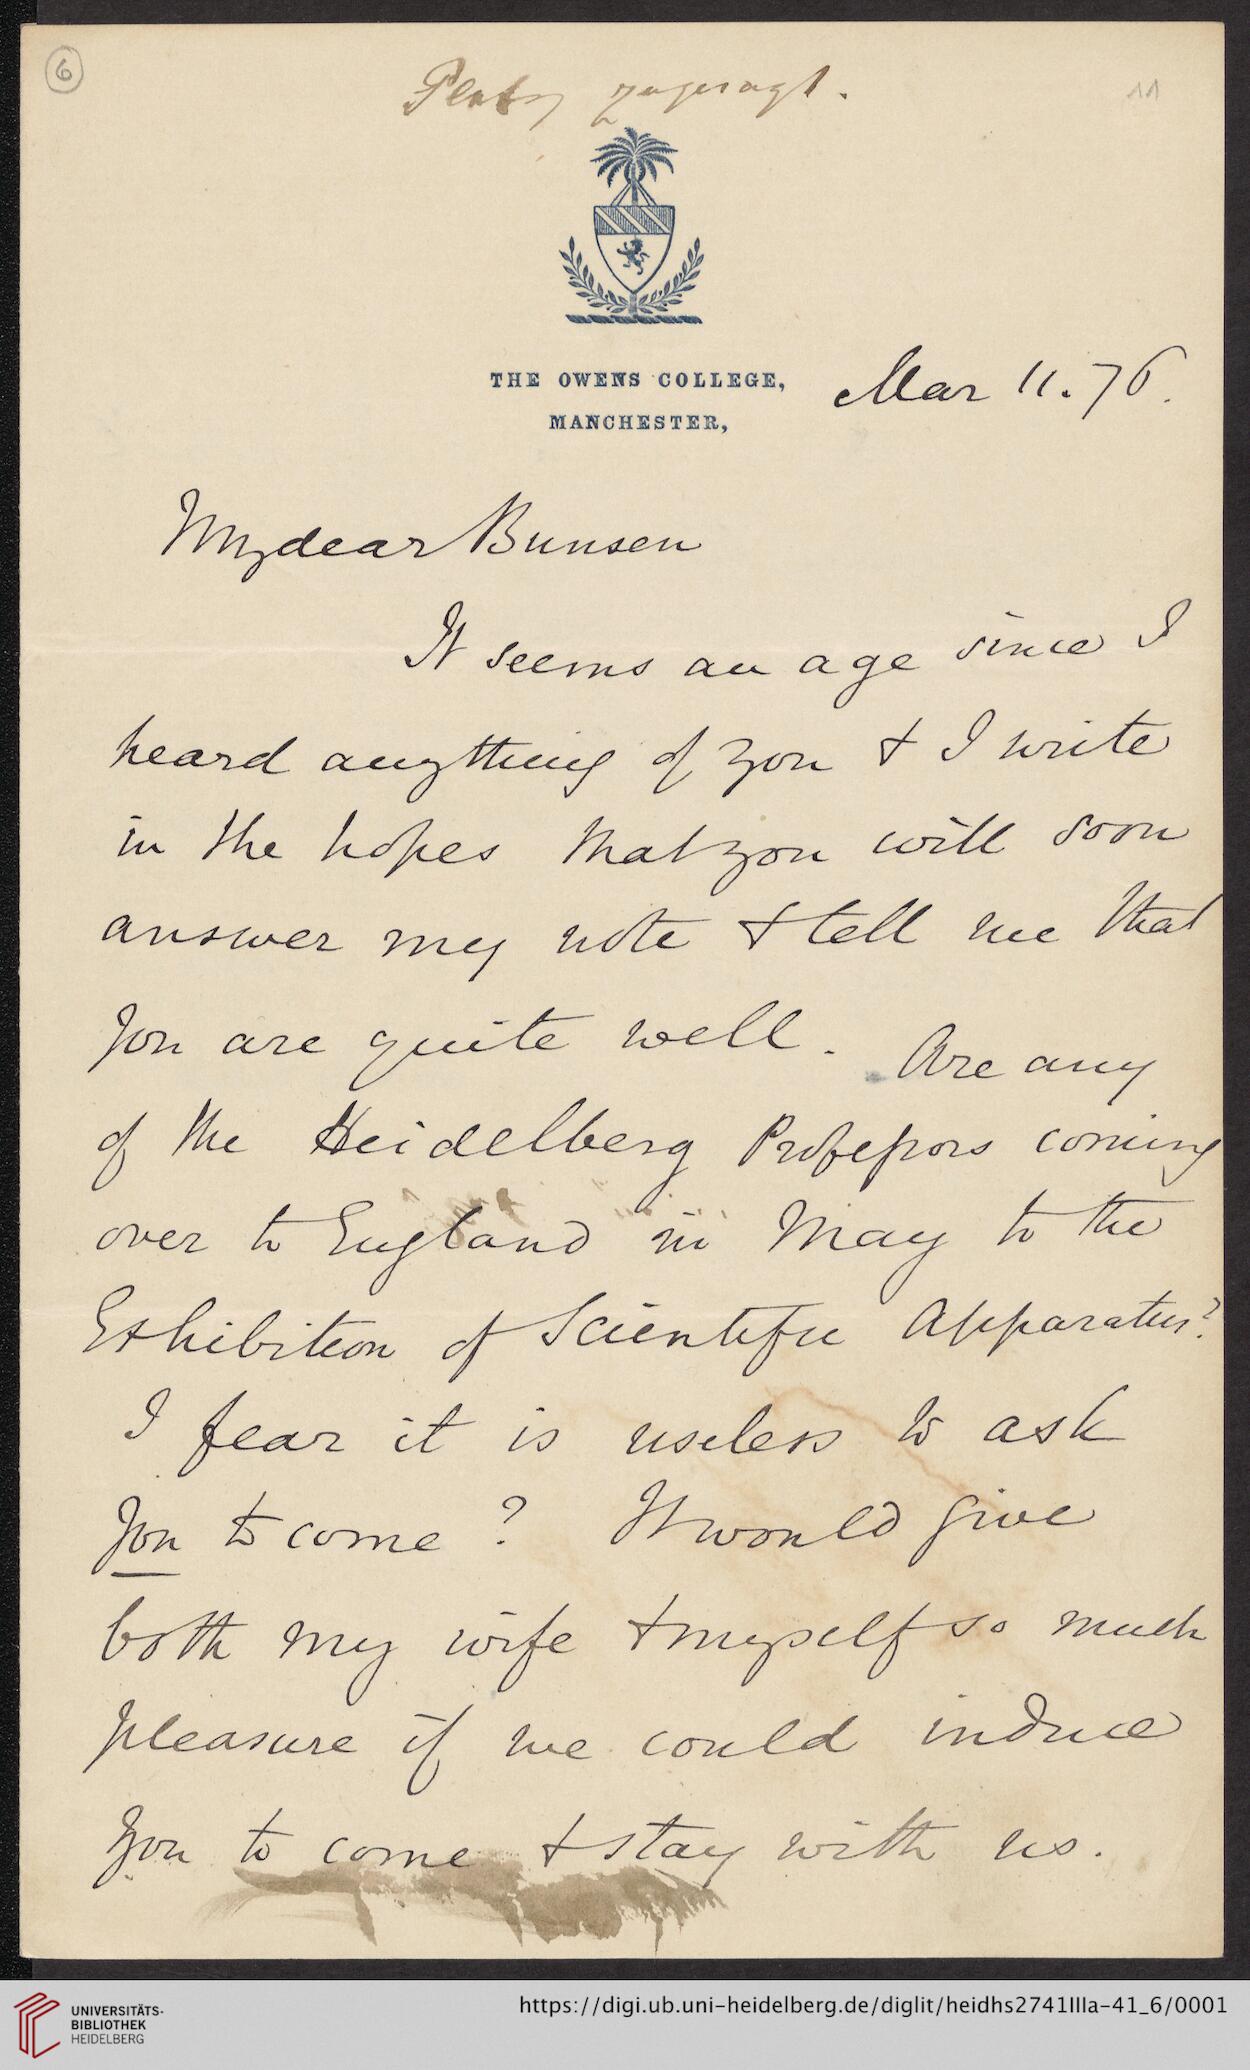 6
Platz zugesagt.
11
THE OWENS COLLEGE,
MANCHESTER,
Mar 11. 76.
My dear Bunsen
It seems an age since I
heard anything of you & I write
in the hopes that you will soon
answer my note & tell me that
you are quite well. Are any
of the Heidelberg Professors coming
over to England in May to the
Exhibition of Scientific Apparatus?
I fear it is useless to ask
you to come? It would give
both my wife & myself so much
pleasure if we could induce
you to come & stay with us.
UNIVERSITÄTS-
BIBLIOTHEK
HEIDELBERG
https://digi.ub.uni-heidelberg.de/diglit/heidhs2741IIIa-41_6/0001